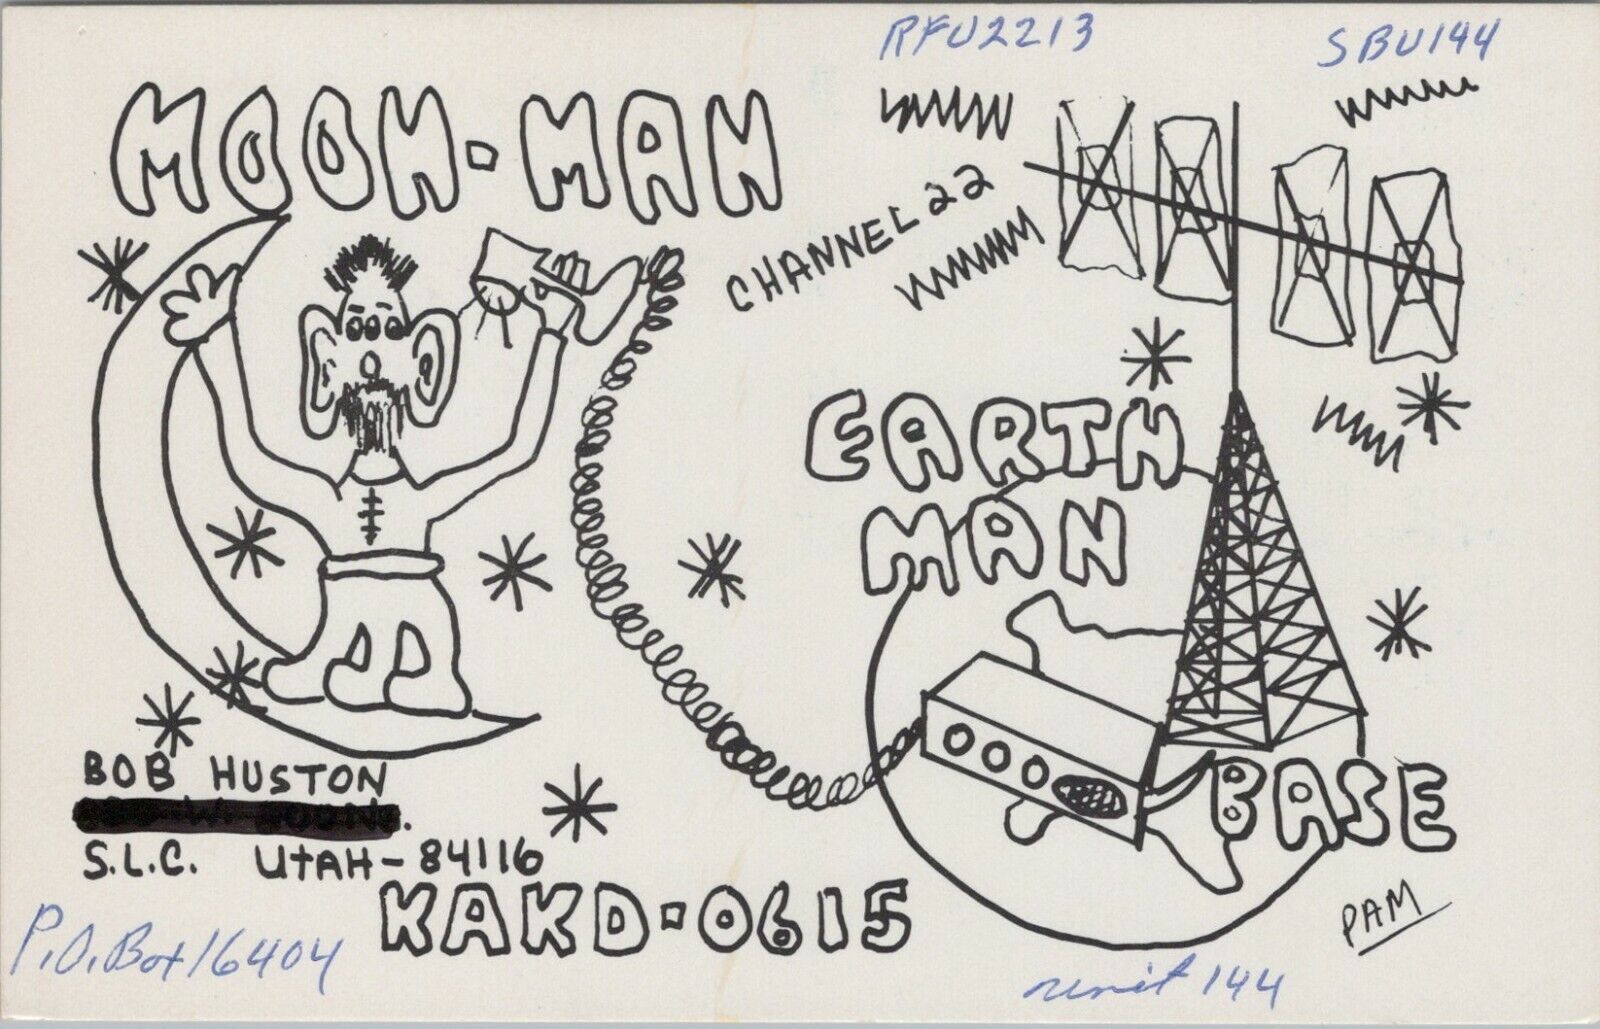 RFU2213
SBU144
MOON-MAN
CHANNEL 22
EARTH
MAN
BASE
BOB HUSTON
S.L.C. UTAH-84116
KAKD-0615
PAM
P.O. Box 16404
unit 144